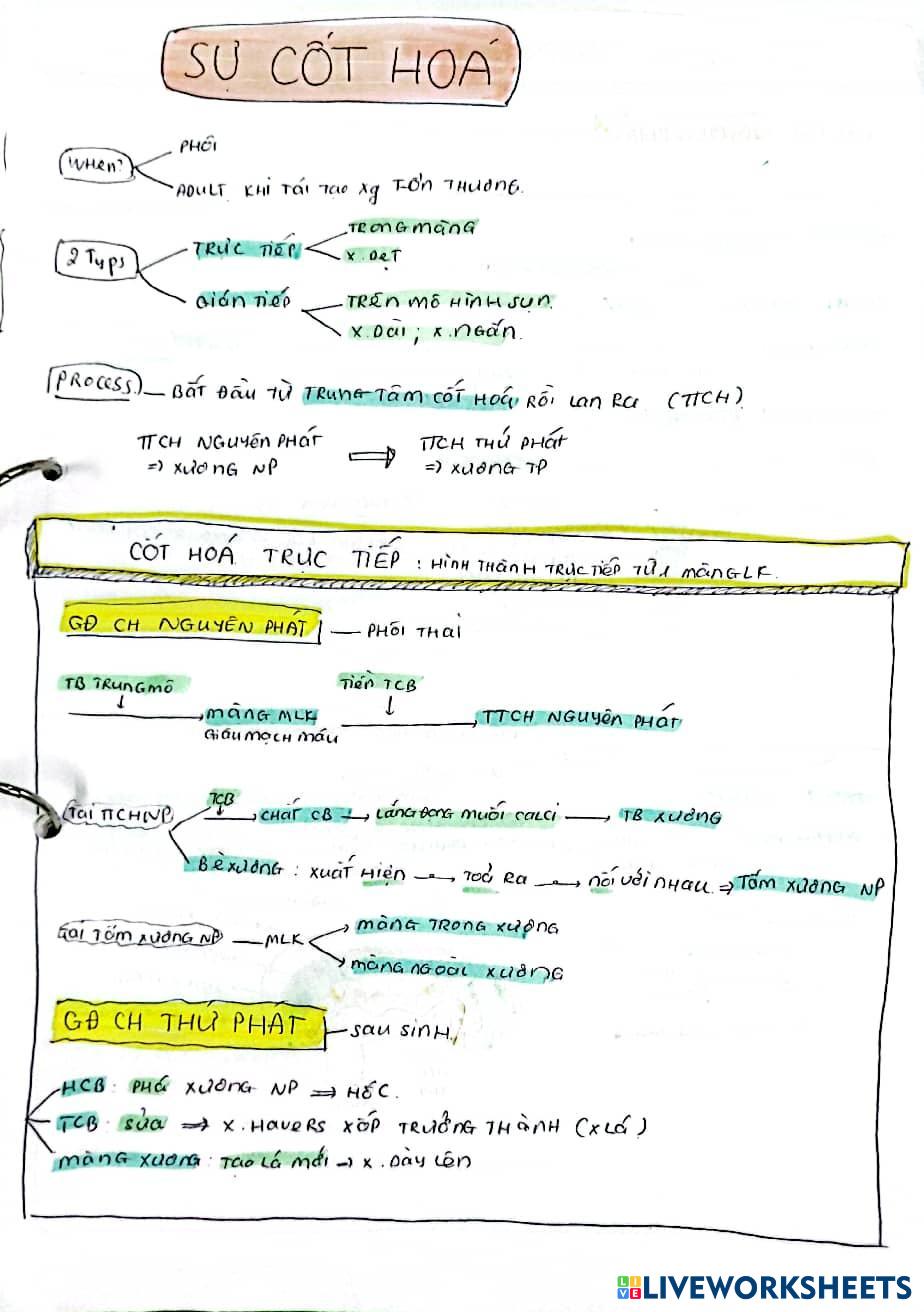 SỰ CỐT HOÁ
WHEN?
PHÔI
ADULT KHI TÁI TẠO Xg TỔN THƯƠNG.
2 Typs
TRỰC TIẾP
TRONG MÀNG
X.DẸT
GIÁN TIẾP
TRÊN MÔ HÌNH SỤN.
X.DÀI; X.NGẮN.
PROCESS
BẮT ĐẦU TỪ TRUNG TÂM CỐT HOÁ, RỒI LAN RA (TTCH).
TTCH NGUYÊN PHÁT ⇒ TTCH THỨ PHÁT
=> XƯƠNG NP => XƯƠNG TP
CỐT HOÁ TRỰC TIẾP : HÌNH THÀNH TRỰC TIẾP TỪ 1 MÀNG LK.
GĐ CH NGUYÊN PHÁT — PHÔI THAI
TB TRUNG MÔ TIỀN TCB
→ MÀNG MLK → TTCH NGUYÊN PHÁT
GIÀU MẠCH MÁU
TẠI TTCH NP
TCB → CHẤT CB → LẮNG ĐỌNG MUỐI CALCI → TB XƯƠNG
BÈ XƯƠNG : XUẤT HIỆN → TOẢ RA → NỐI VỚI NHAU ⇒ TẤM XƯƠNG NP
TẠI TẤM XƯƠNG NP — MLK
→ MÀNG TRONG XƯƠNG
→ MÀNG NGOÀI XƯƠNG
GĐ CH THỨ PHÁT — SAU SINH
HCB : PHÁ XƯƠNG NP ⇒ HỐC.
TCB : SỬA ⇒ X.HAVERS XỐP TRƯỞNG THÀNH (X LÁ)
MÀNG XƯƠNG : TẠO LÁ MỚI → X. DÀY LÊN
LIVEWORKSHEETS